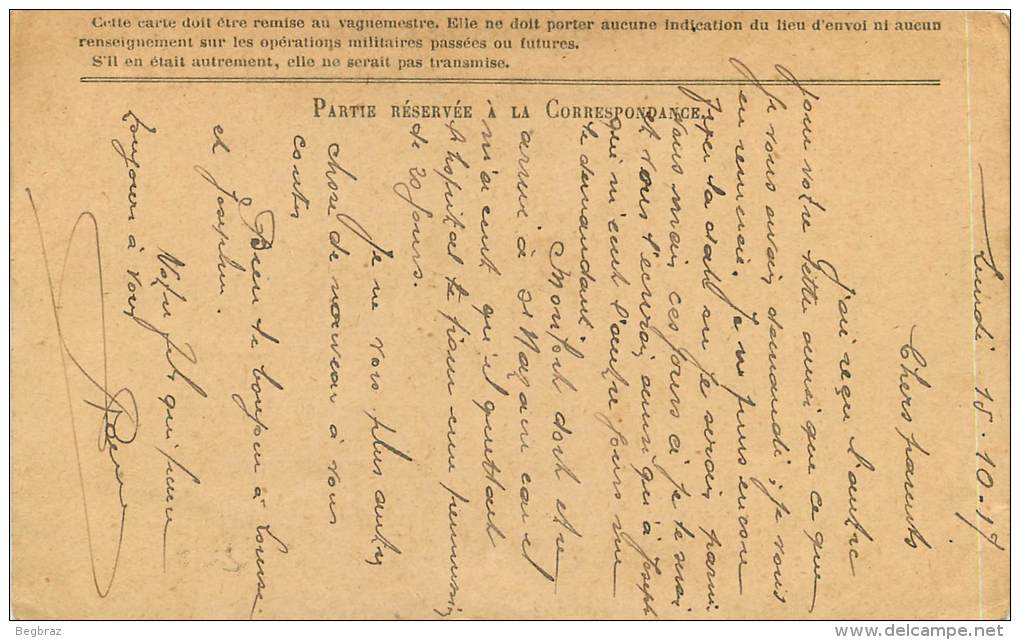 Cette carte doit être remise au vaguemestre. Elle ne doit porter aucune indication du lieu d'envoi ni aucun
renseignement sur les opérations militaires passées ou futures.
S'il en était autrement, elle ne serait pas transmise.
PARTIE RÉSERVÉE À LA CORRESPONDANCE.
Lundi 15-10-17
Chers parents
J'ai reçu l'autre
jour votre lettre ainsi que ce que
je vous avais demandé ; je vous
en remercie. Je ne puis encore
fixer la date ou je serai parmi
vous mais ces jours ci je le
et vous l'écrirai ainsi qu'à Joseph
qui m'écrit l'autre jour
le demandant.
Monfort doit etre
arrivé à St Nazaire car
m'a écrit qu'il quittait
l'hopital le
de 20 jours.
Je ne vois plus autre
chose de nouveau à vous
conter
Bien le bonjour à Louise
et Joseph.
Votre fils qui
toujours à vous
Begbraz